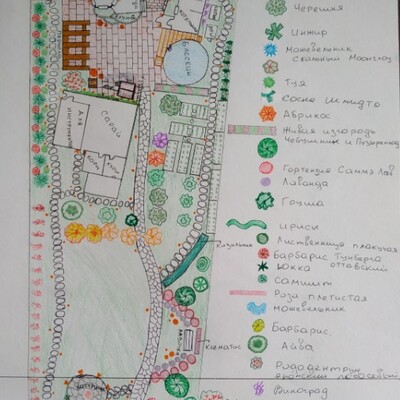 Черешня
Инжир
Можевельник
Скальный Моонглоу
Туя
Сосна Шмидта
Абрикос
Живая изгородь
Чебушник и Пузыреплод
Гортензия Самма Лав
Лаванда
Груша
ириси
Лиственница плакучая
Барбарис Тунберга
оттавский
Юкка
Самшит
Роза плетистая
можевельник
Барбарис
Айва
Рододендрон
Виноград
Бассейн
Сарай
Для
инструмента
Кизильник
Клематис